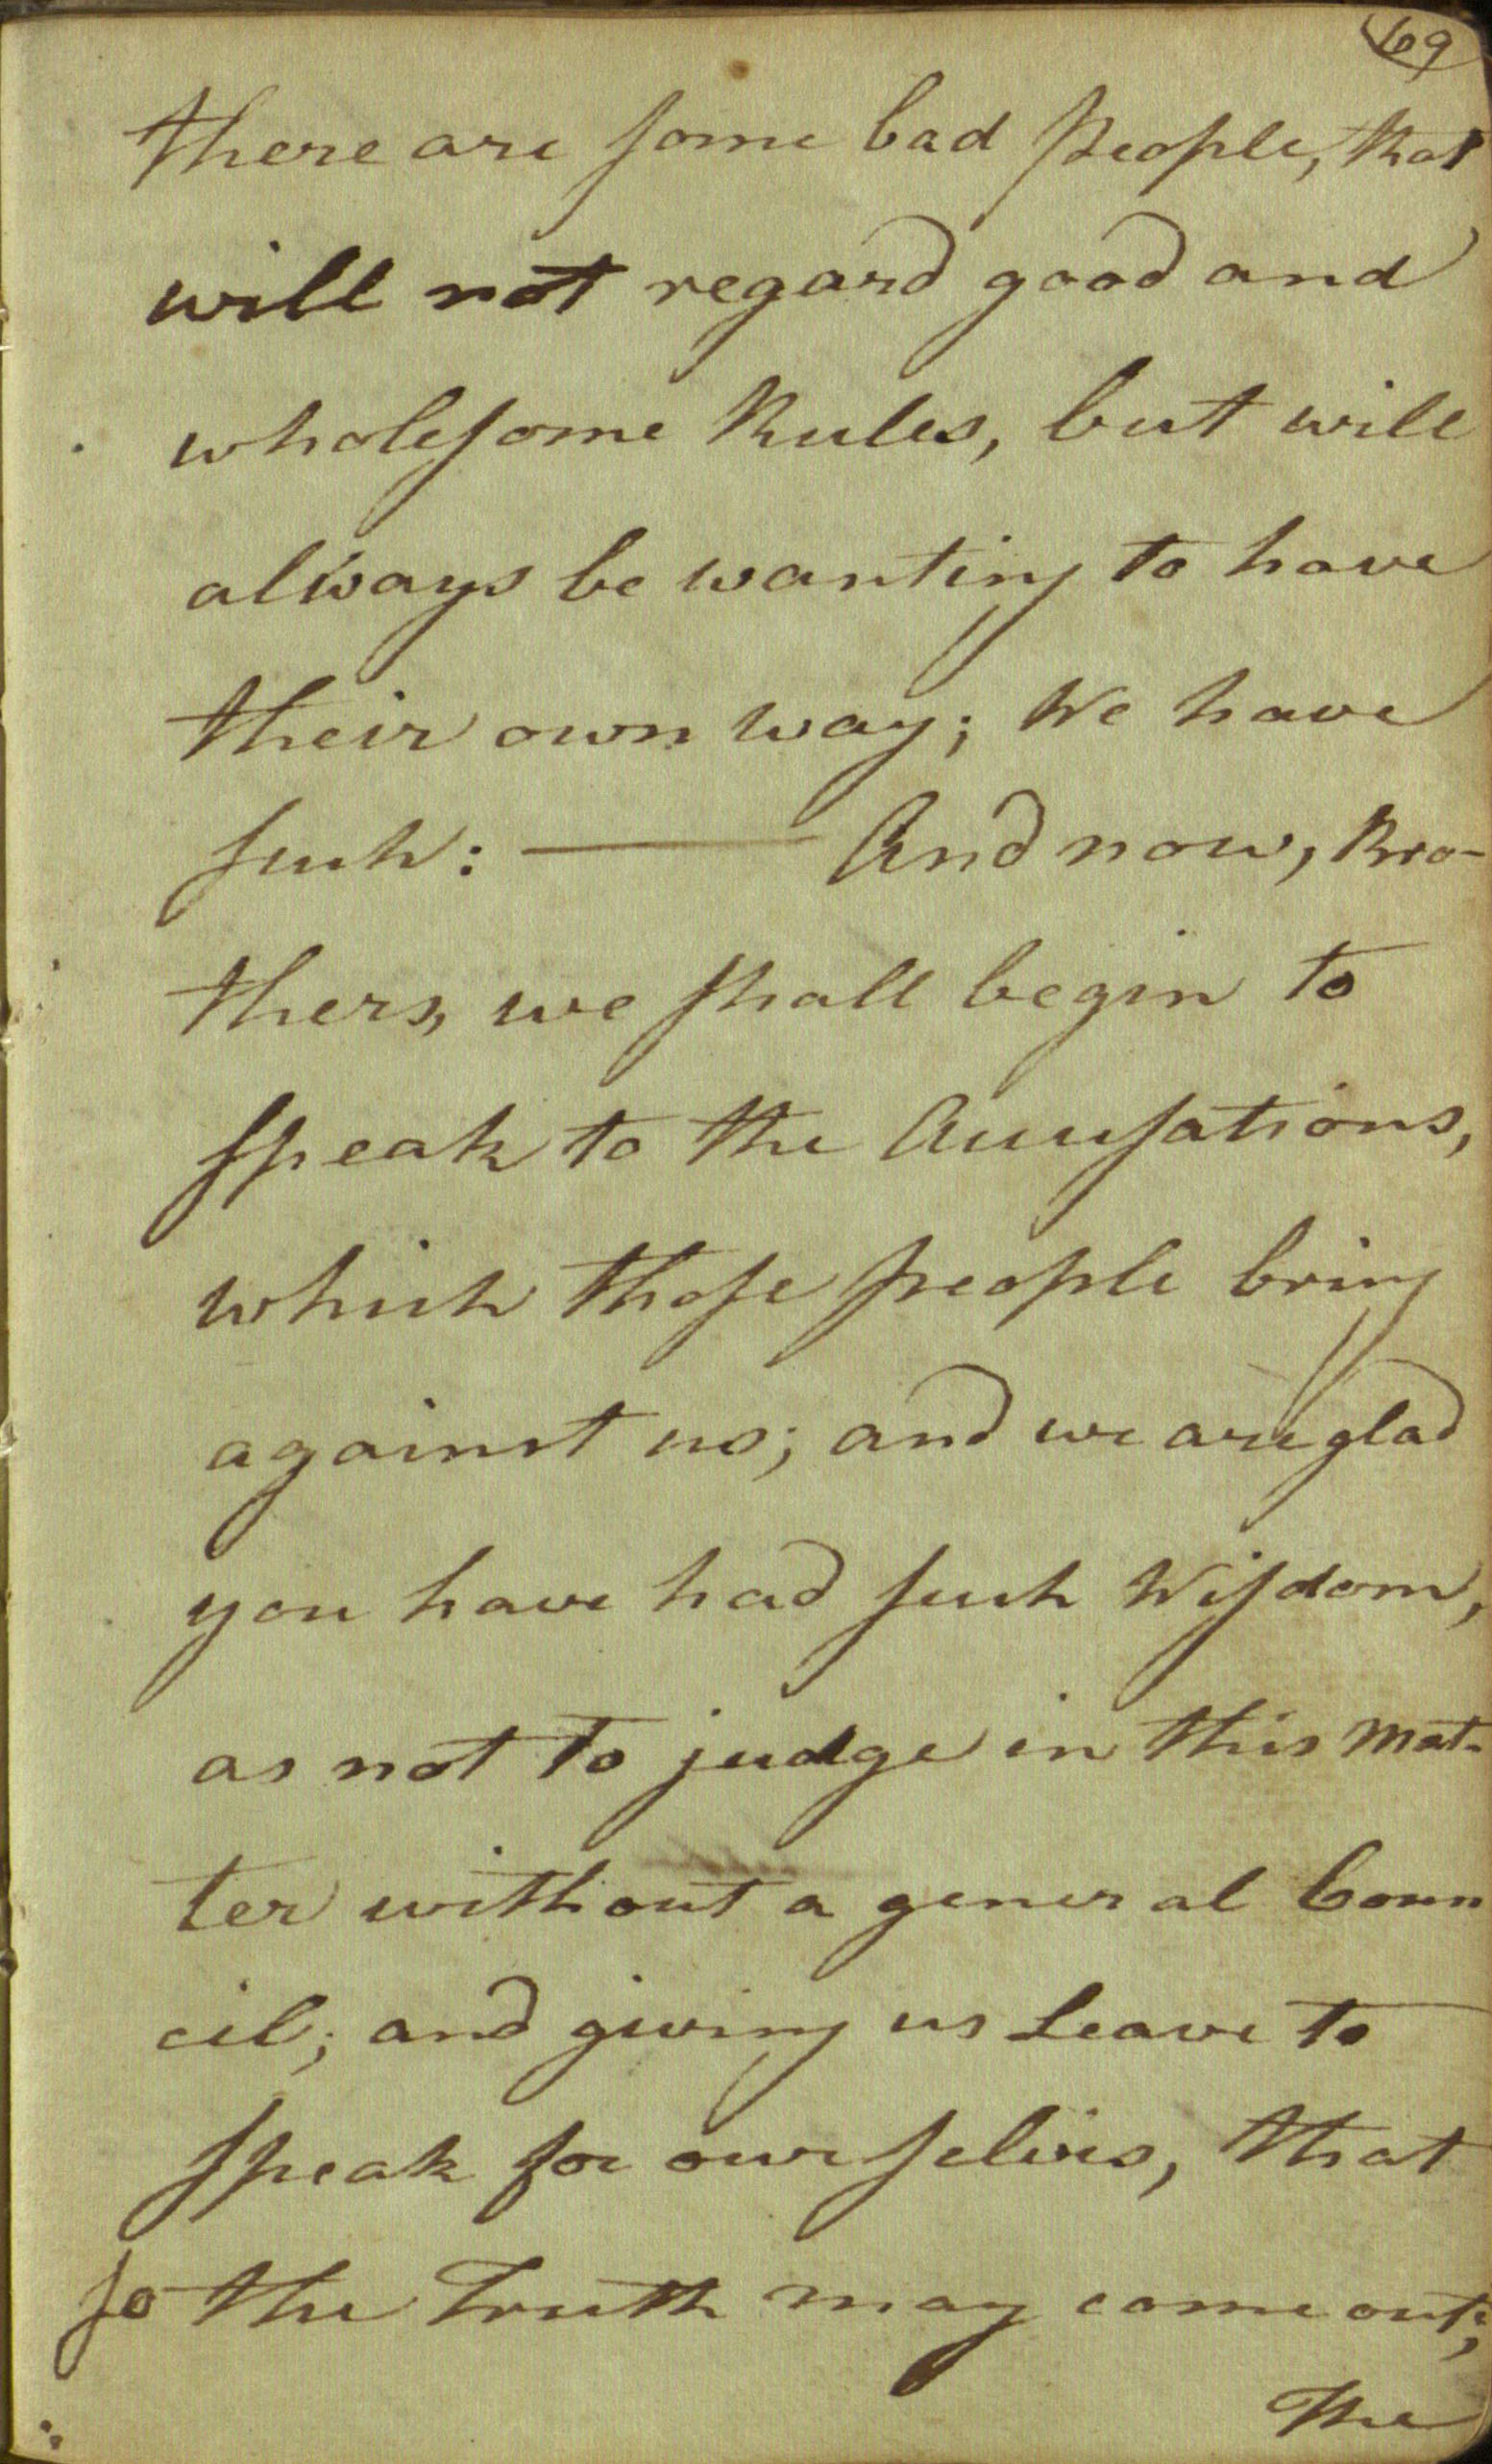 69
there are some bad People, that
will not regard good and
wholesome Rules, but will
always be wanting to have
their own way; We have
such: — And now, Bro-
thers, we shall begin to
speak to the Accusations,
which those people bring
against us; and we are glad
you have had such Wisdom,
as not to judge in this Mat-
ter without a general Coun
cil; and giving us Leave to
speak for ourselves, that
so the Truth may come out;
The